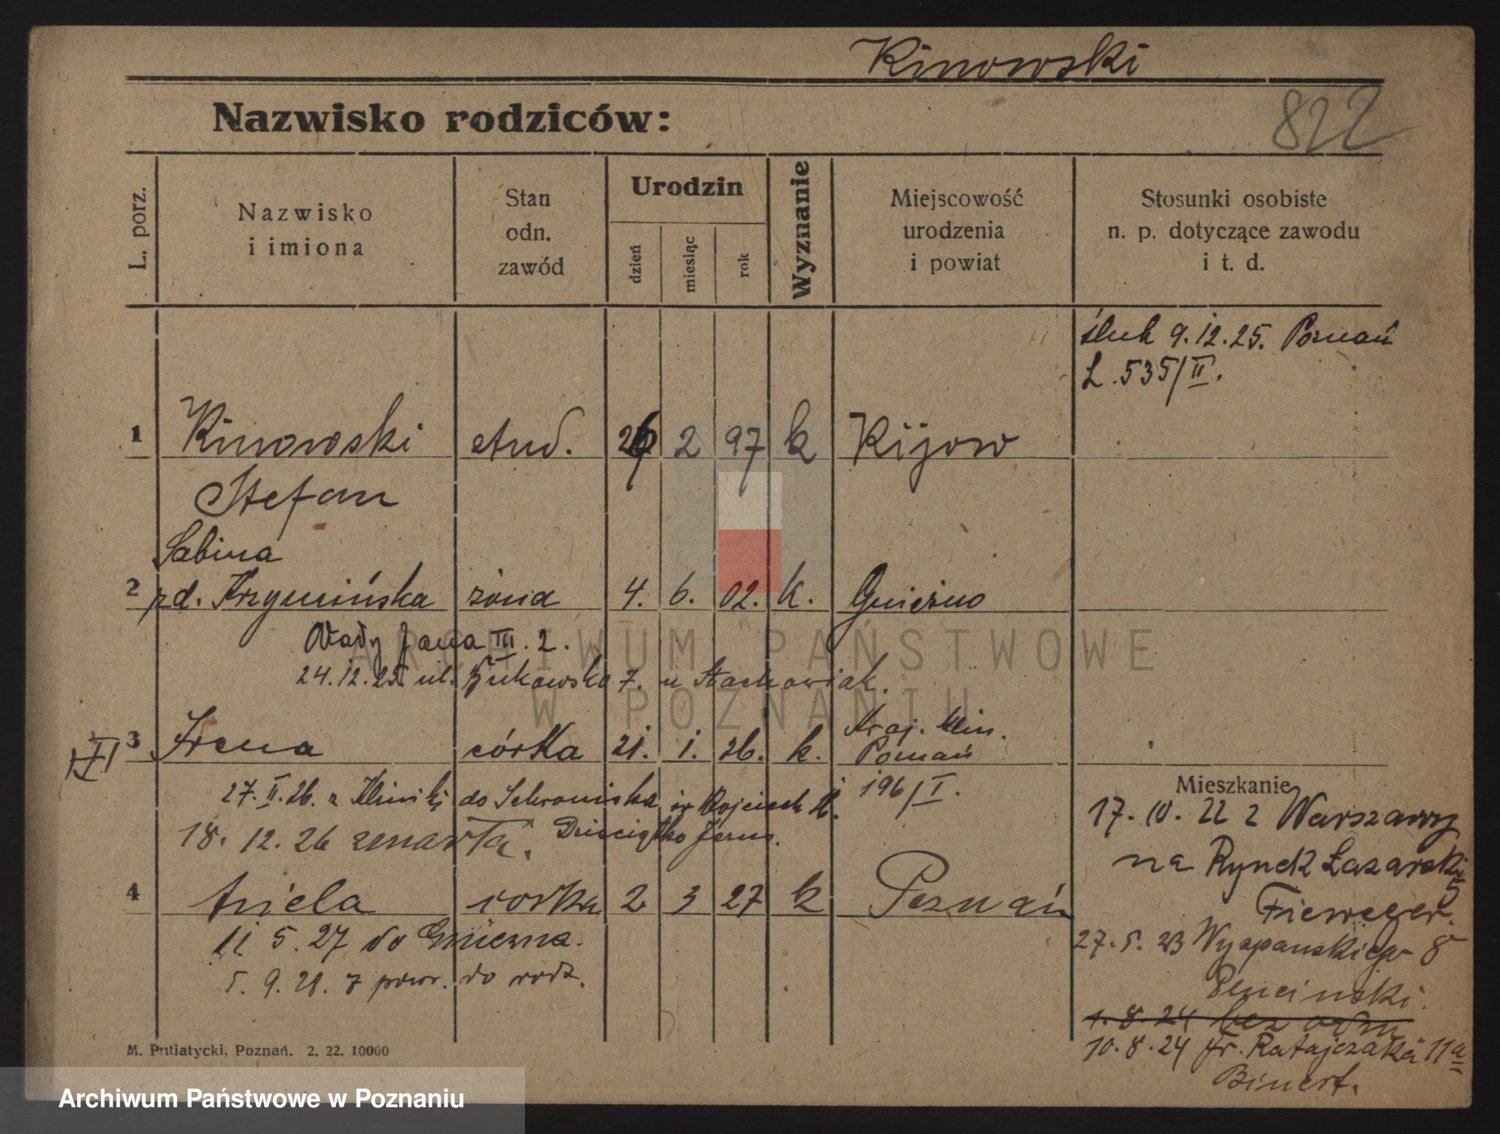 Kinowski
822
Nazwisko rodziców:
L. porz.
Nazwisko
i imiona
Stan
odn.
zawód
Urodzin
dzień
miesiąc
rok
Wyznanie
Miejscowość
urodzenia
i powiat
Stosunki osobiste
n. p. dotyczące zawodu
i t. d.
ślub 9.12.25. Poznań
L. 535/II.
1 Kinowski stud. 26 2 97 k Kijow
Stefan
Sabina
2 zd. Krzymińska żona 4. 6. 02. k. Gniezno
Wały Jana III. 2.
24.12.25 ul. Bukowska 7. u Stachowiak.
Kraj. Klin.
3 Irena córka 21. 1. 26. k. Poznań
196/I.
27.II.26. z Kliniki do Schroniska św Wojciech
Dzieciątko Jezus.
18. 12. 26 zmarła.
4 Aniela corka 2 3 27 k Poznań
11. 5. 27 do Gniezna.
5. 9. 28. z powr. do rodz.
Mieszkanie
17. 10. 22 z Warszawy
na Rynek Łazarski
5
27. 5. 23 Wyspianskiego 8
1. 8. 24 bez odm
10. 8. 24 Fr. Ratajczaka 11a
Binert.
M. Putiatycki, Poznań. 2. 22. 10000
ARCHIWUM PAŃSTWOWE
W POZNANIU
Archiwum Państwowe w Poznaniu